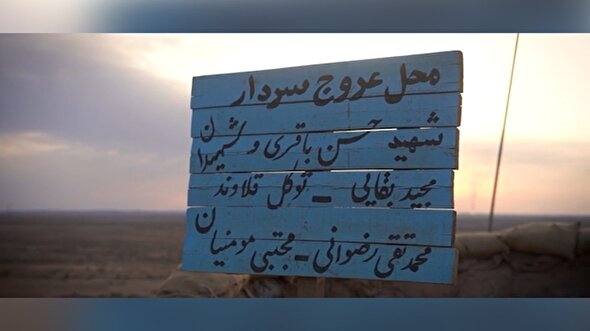 محل عروج سردار
شهید حسن باقری و شهیدان
مجید بقایی - توکل قلاوند
محمدتقی رضوانی - مجتبی مومنیان